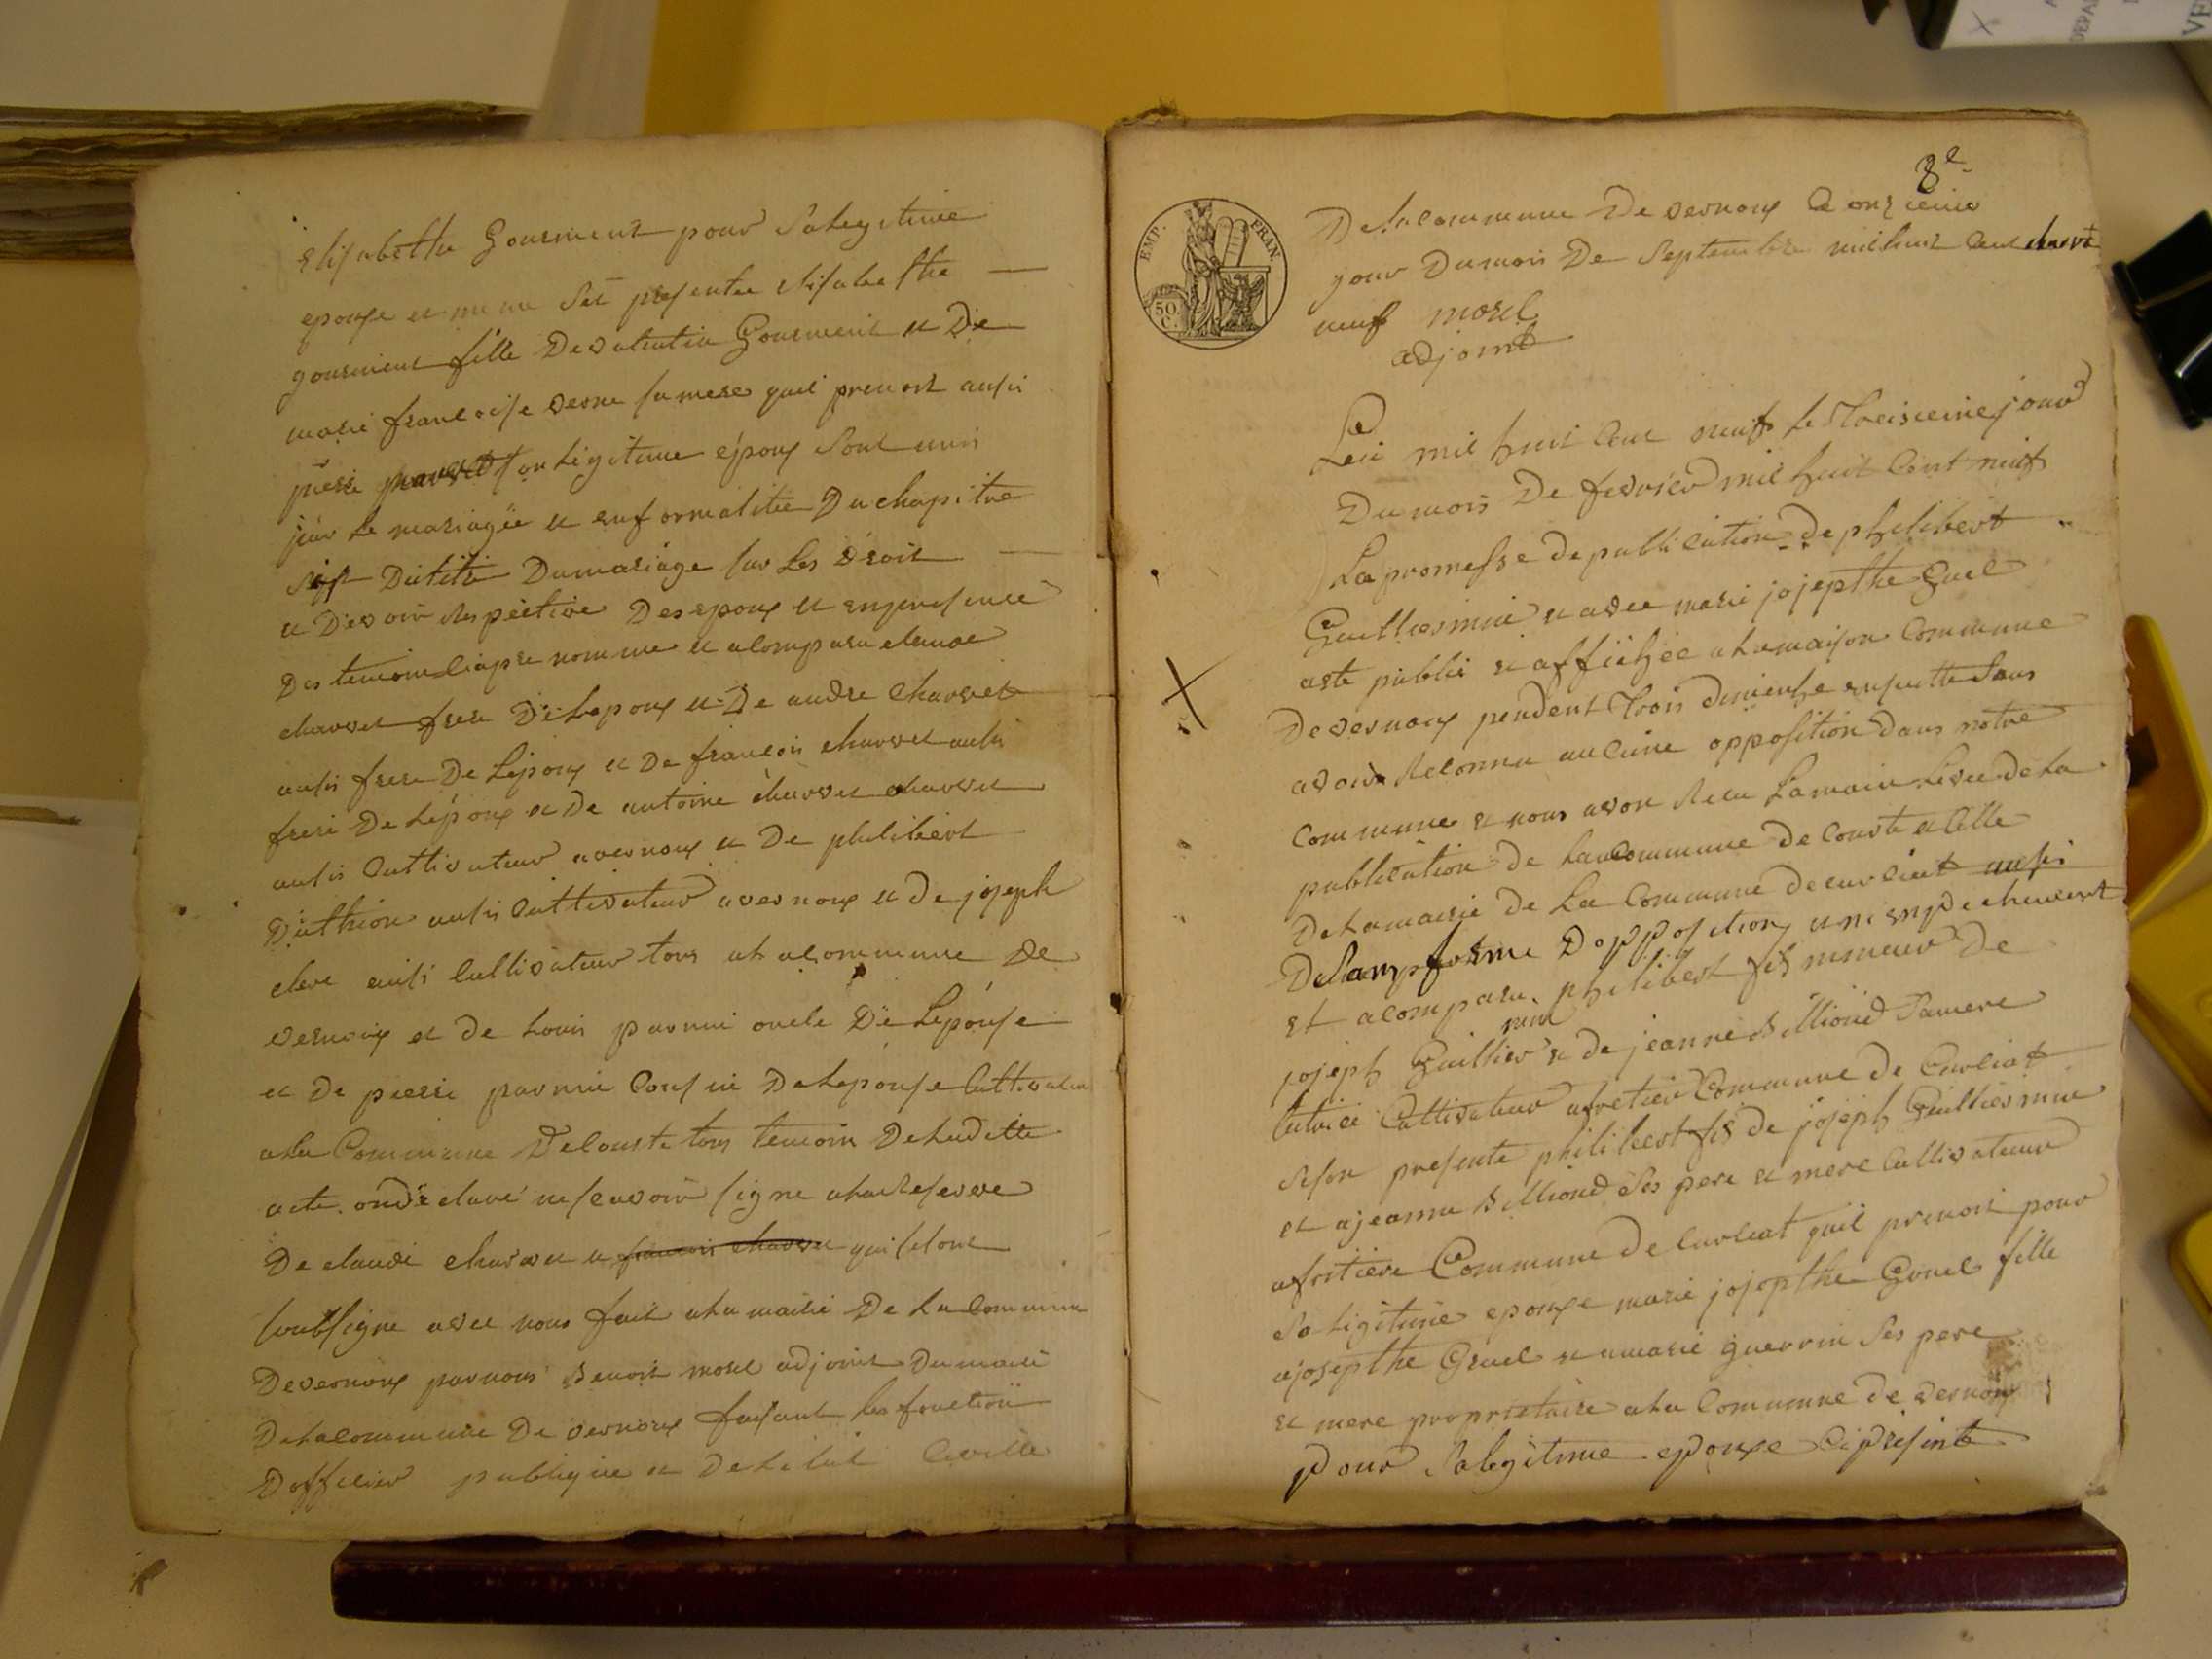 Elisabetthe Gourment pour Salegitime
epouse et meme Sét presentée elisabesthe
gourment fille De valentin Gourment et De
marie francoise verne sa mere quil prenoit ausi
pierre pour son Legitime époux Sont unis
pár Le mariagée et enformalitée Duchapitre
Six Dutitre Dumariage sur Les Droit
et Devoir respective Des epoux et enpresence
Des temoin ciapre nomme et acomparu claude
charvet frere De Lepoux et De andre Charvet
ausis frere De Lépoux et De francois charvet ausis
frere De Lépoux et De antoine charvet charvet
ausis Cultivateur avernoux et De philibert
Duthion ausis Cultivateur avernoux et De joseph
clere ausi Cultivateur tous ala commune De
vernoux et De Louis parmi oncle De Lépouse
et De pierre parmi Cousin De Lepouse Cultivateur
ala Commune De Couste tous temoin De Ladette
acte on déclaré nesavoir signe ala Reserve
De claude charvet et francois charvet qui seront
soubsigne avec nous fait ala mairie De La Commune
De vernoux par nous Benoit morel adjoint Du maire
De La commune De vernoux faisant les fonction
Dofficier publique et De Létat Civille
8e
EMP. FRAN.
50 C.
De la commune De vernoux Le onzieme
jour Du mois De Septembre mil huit Cent
neuf morel
adjoint
Lan mil huit Cent neuf le Troisieme jour
Du mois De fevrier mil huit Cent neuf
La promesse de publication de philibert
Guilliermin et avec marie josepthe Gruel
aete publié et affichée alamaison Commune
De vernoux pendent Trois dimenche ensuitte Sans
avoir Reconnu aucune opposition dans notre
Commune et nous avon Recu Lamain Levee de La
publication de La Commune de Couste et Celle
De La mairie de La Commune de curciat ausi
De La mp forme Dopposition uni enpechement
et acomparu philibert fis mineur de
joseph Guilliermin et de jeanne Billioud Samere
tutrice Cultivateur afretier Commune de Curciat
Seson presente philibert fis de joseph Guilliermin
et ajeanne Billioud Ses pere et mere Cultivateur
afretiere Commune de Curciat quil prenoit pour
Sa Ligitime epouse marie josepthe Gruel fille
ajosepthe Gruel et amarie guerrin Ses pere
et mere proprietaire ala Commune de vernoux
pour Salegitime epouse Cipresinte